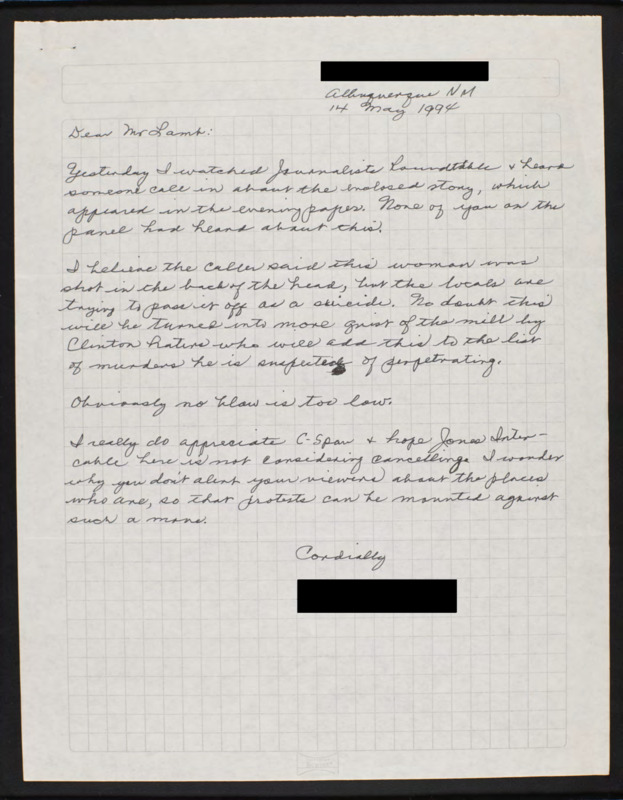 Albuquerque NM
14 May 1994
Dear Mr Lamb:
Yesterday I watched Journalists Roundtable & heard
someone call in about the enclosed story, which
appeared in the evening paper. None of you on the
panel had heard about this.
I believe the caller said this woman was
shot in the back of the head, but the locals are
trying to pass it off as a suicide. No doubt this
will be turned into more grist of the mill by
Clinton haters who will add this to the list
of murders he is suspected of perpetrating.
Obviously no blow is too low.
I really do appreciate C-Span & hope Jones Inter-
cable here is not considering cancelling. I wonder
why you don't alert your viewers about the places
who are, so that protests can be mounted against
such a move.
Cordially